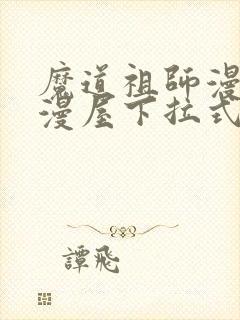 魔道祖師漫
漫屋下拉式
譚飛